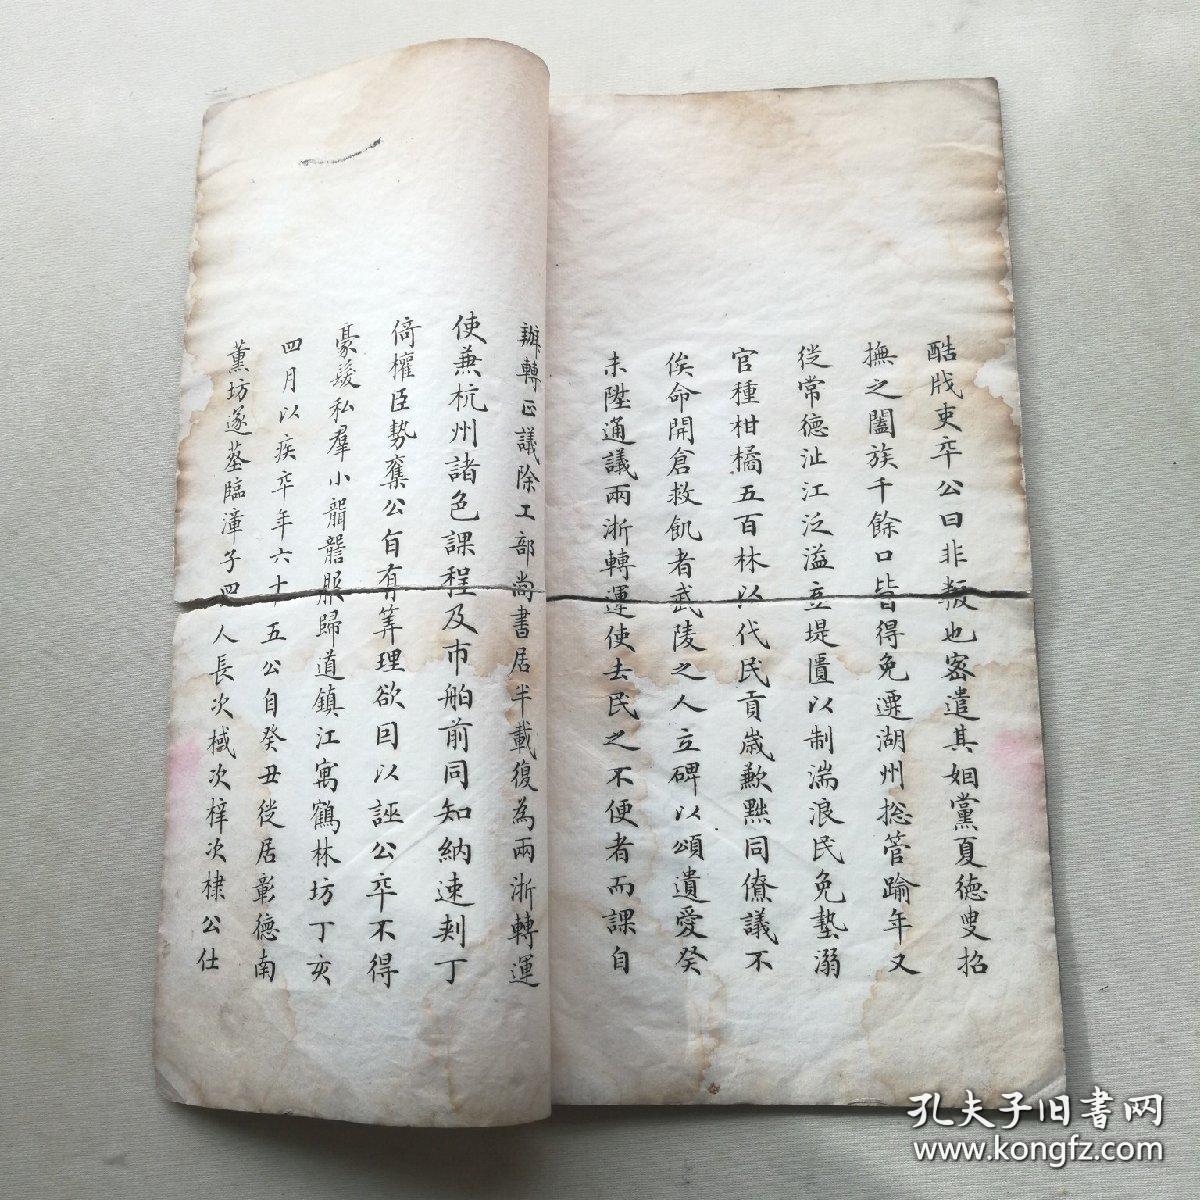 酷戕吏卒公曰非叛也密遣其姻黨夏德叟招
撫之闔族千餘口皆得免遷湖州總管踰年又
從常德沚江泛溢立堤匱以制湍浪民免墊溺
官種柑橘五百林以代民貢歲歉㸃同僚議不
俟命開倉救飢者武陵之人立碑以頌遺愛癸
未陞通議兩浙轉運使去民之不便者而課自
辦轉正議除工部尚書居半載復為兩浙轉運
使兼杭州諸色課程及市舶前同知納速剌丁
倚權臣勢奪公自有筭理欲因以誣公卒不得
豪髮私羣小
服歸道鎮江寓鶴林坊丁亥
四月以疾卒年六十五公自癸丑從居彰德南
薰坊遂葬臨漳子四人長次棫次梓次棣公仕
孔夫子旧书网
www.kongfz.com